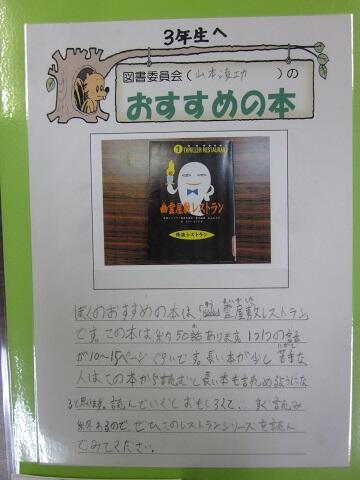 3年生へ
図書委員会(山本 功 )の
おすすめの本
1 THRILLER RESTAURANT
幽霊屋敷レストラン
怪談レストラン
ぼくのおすすめの本は、「幽霊屋敷レストラン
です。この本は約50話あります。1つ1つの話
が10~15ページぐらいです。長い本が少し苦手な
人はこの本から読むと長い本も読めるようにな
ると思います。読んでいくとおもしろくて、すぐ読み
終わるので、ぜひこのレストランシリーズを読ん
でみてください。